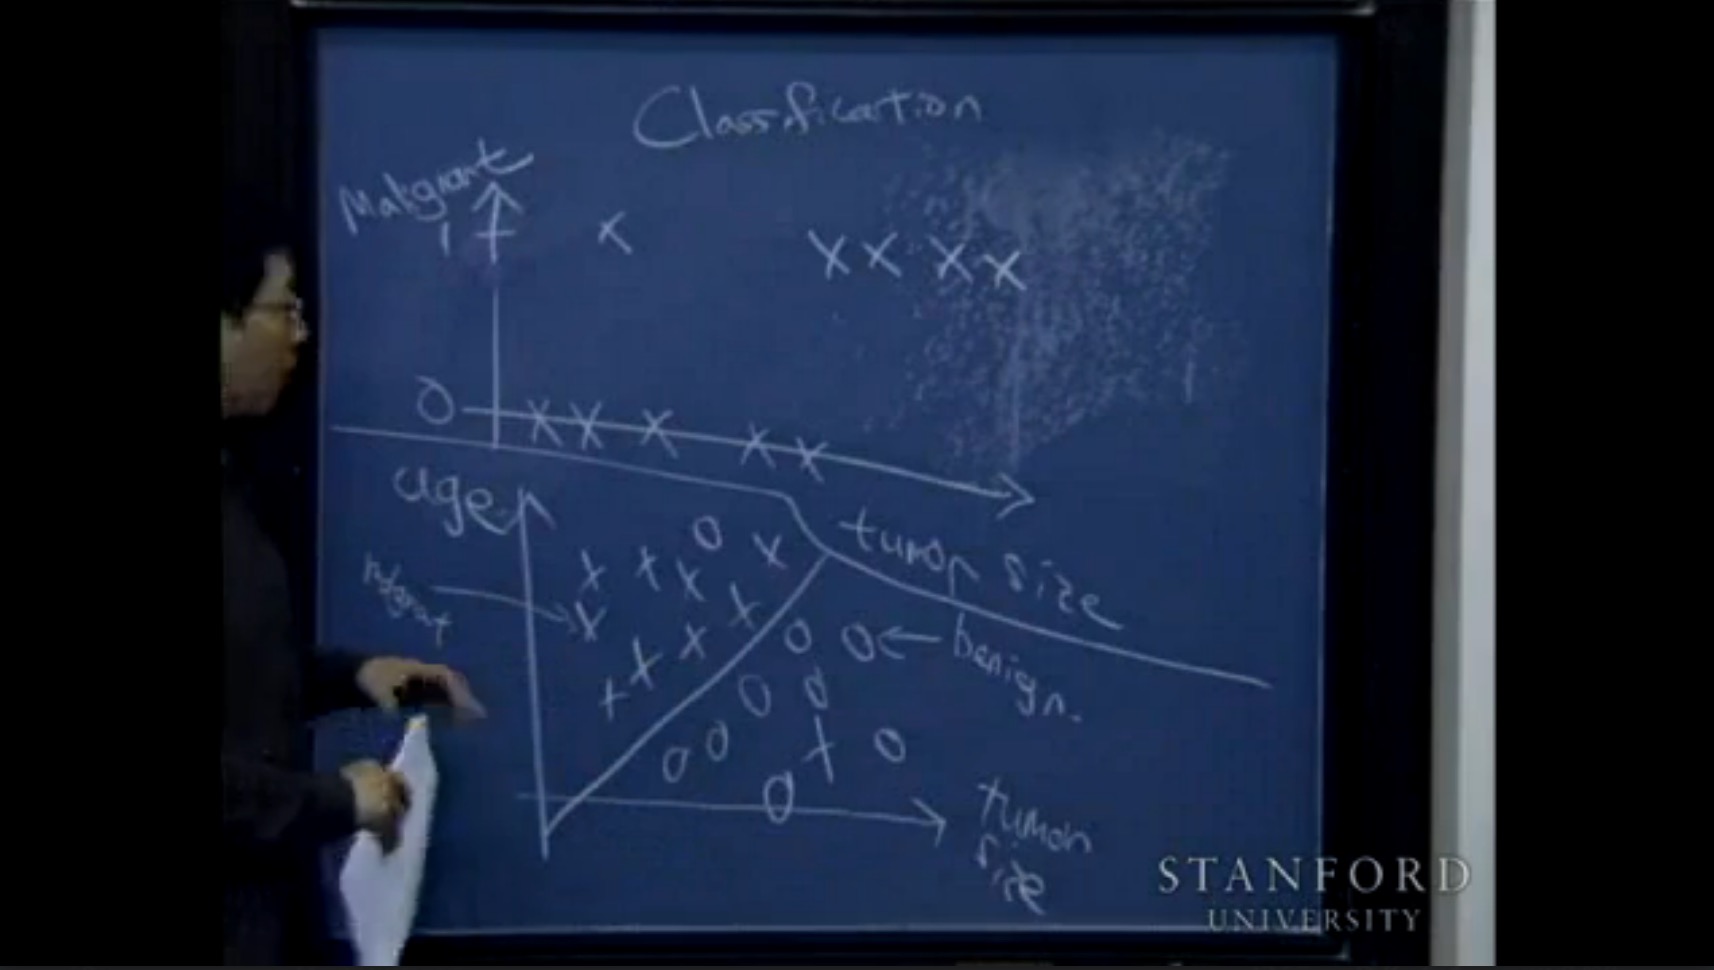 Classification
Malignant
1
0
tumor size
age
malignant
benign.
tumor
size
STANFORD
UNIVERSITY